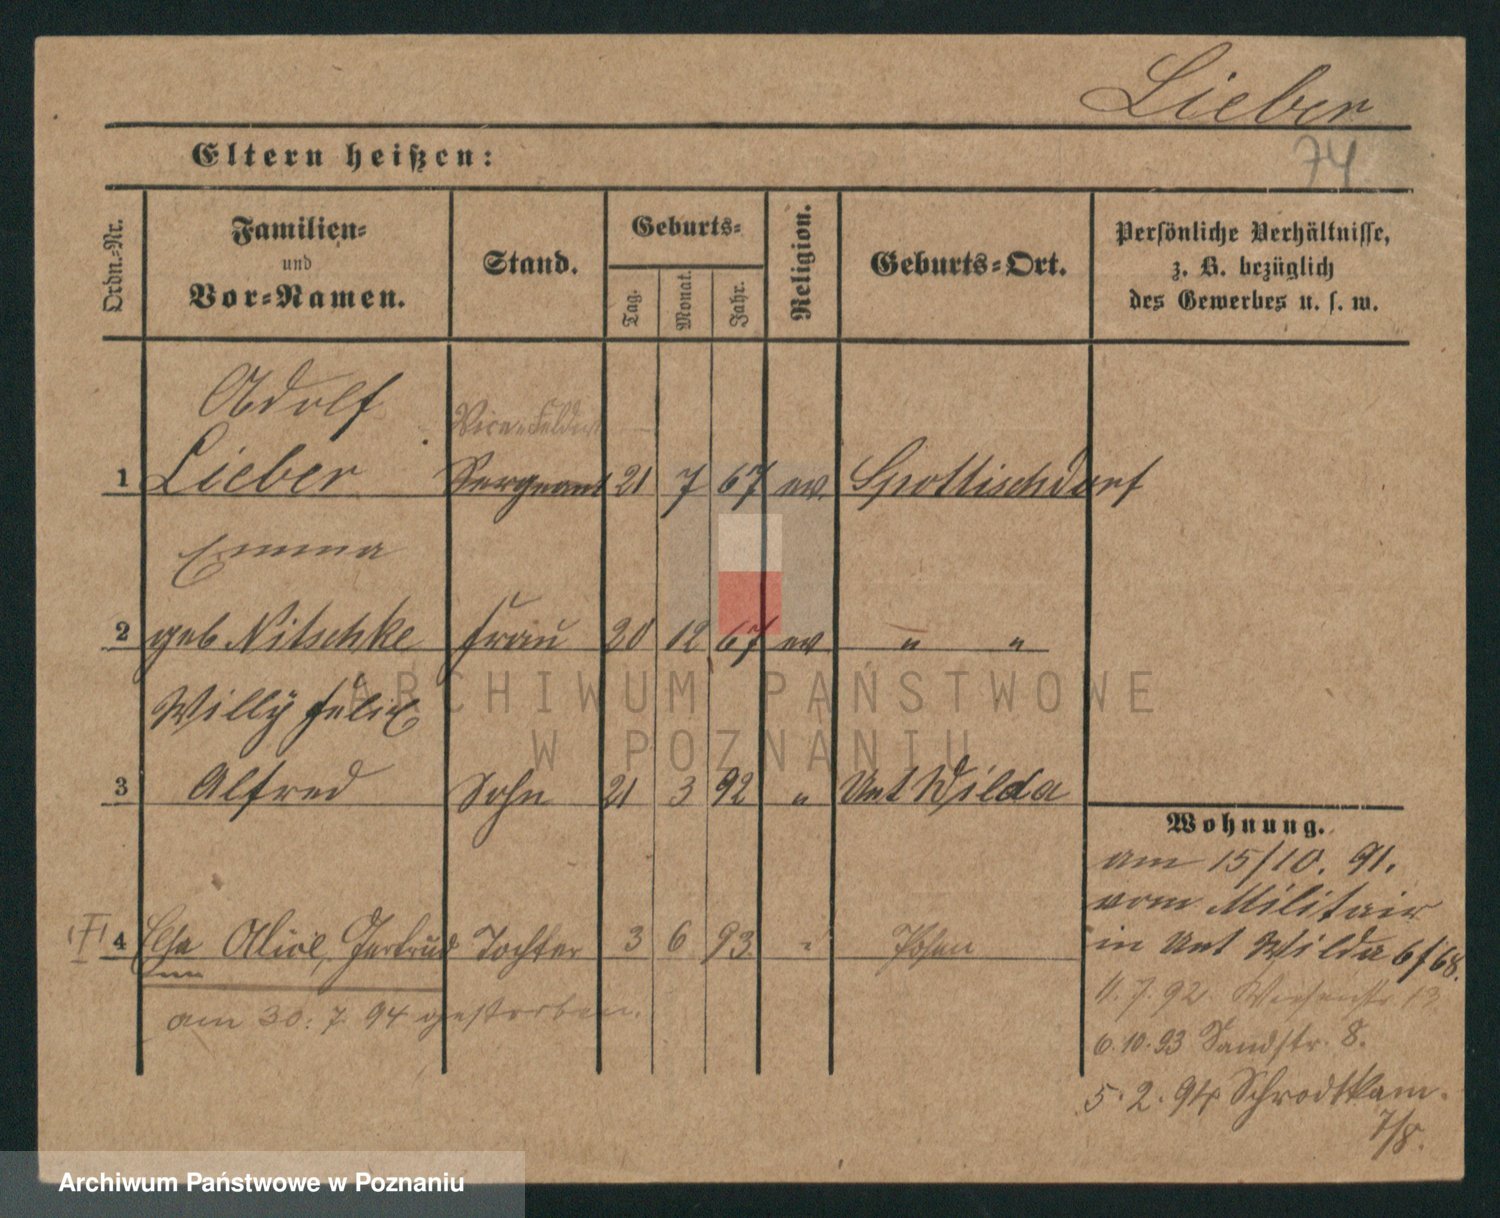 Lieber
74
Eltern heißen:
Ordn.-Nr.
Familien-
und
Vor-Namen.
Stand.
Geburts-
Tag.
Monat.
Jahr.
Religion.
Geburts-Ort.
Persönliche Verhältnisse,
z. B. bezüglich
des Gewerbes u. s. w.
Adolf
1 Lieber Sergeant 21 7 67 ev. Spottischdorf
Emma
2 geb Nitschke Frau 20 12 67 ev " "
Willy Felix
3 Alfred Sohn 21 3 92 " Unt Wilda
4 Elsa Alice, Gertrud Tochter 3 6 93 " Posen
am 30. 7. 94 gestorben.
Wohnung.
am 15/10. 91.
vom Militair
in Unt Wilda 6/68.
11. 7. 92. Wiesenstr 13
6. 10. 93 Sandstr. 8.
5. 2. 94 Schrodkam.
7/8.
ARCHIWUM PAŃSTWOWE
W POZNANIU
Archiwum Państwowe w Poznaniu